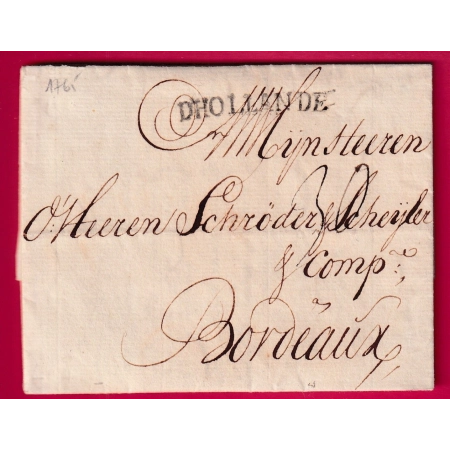 1761
DHOLLANDE
Mijn Heeren
d'Heeren Schröder & Scheyler
& Comp.ᵉ
Bordeaux